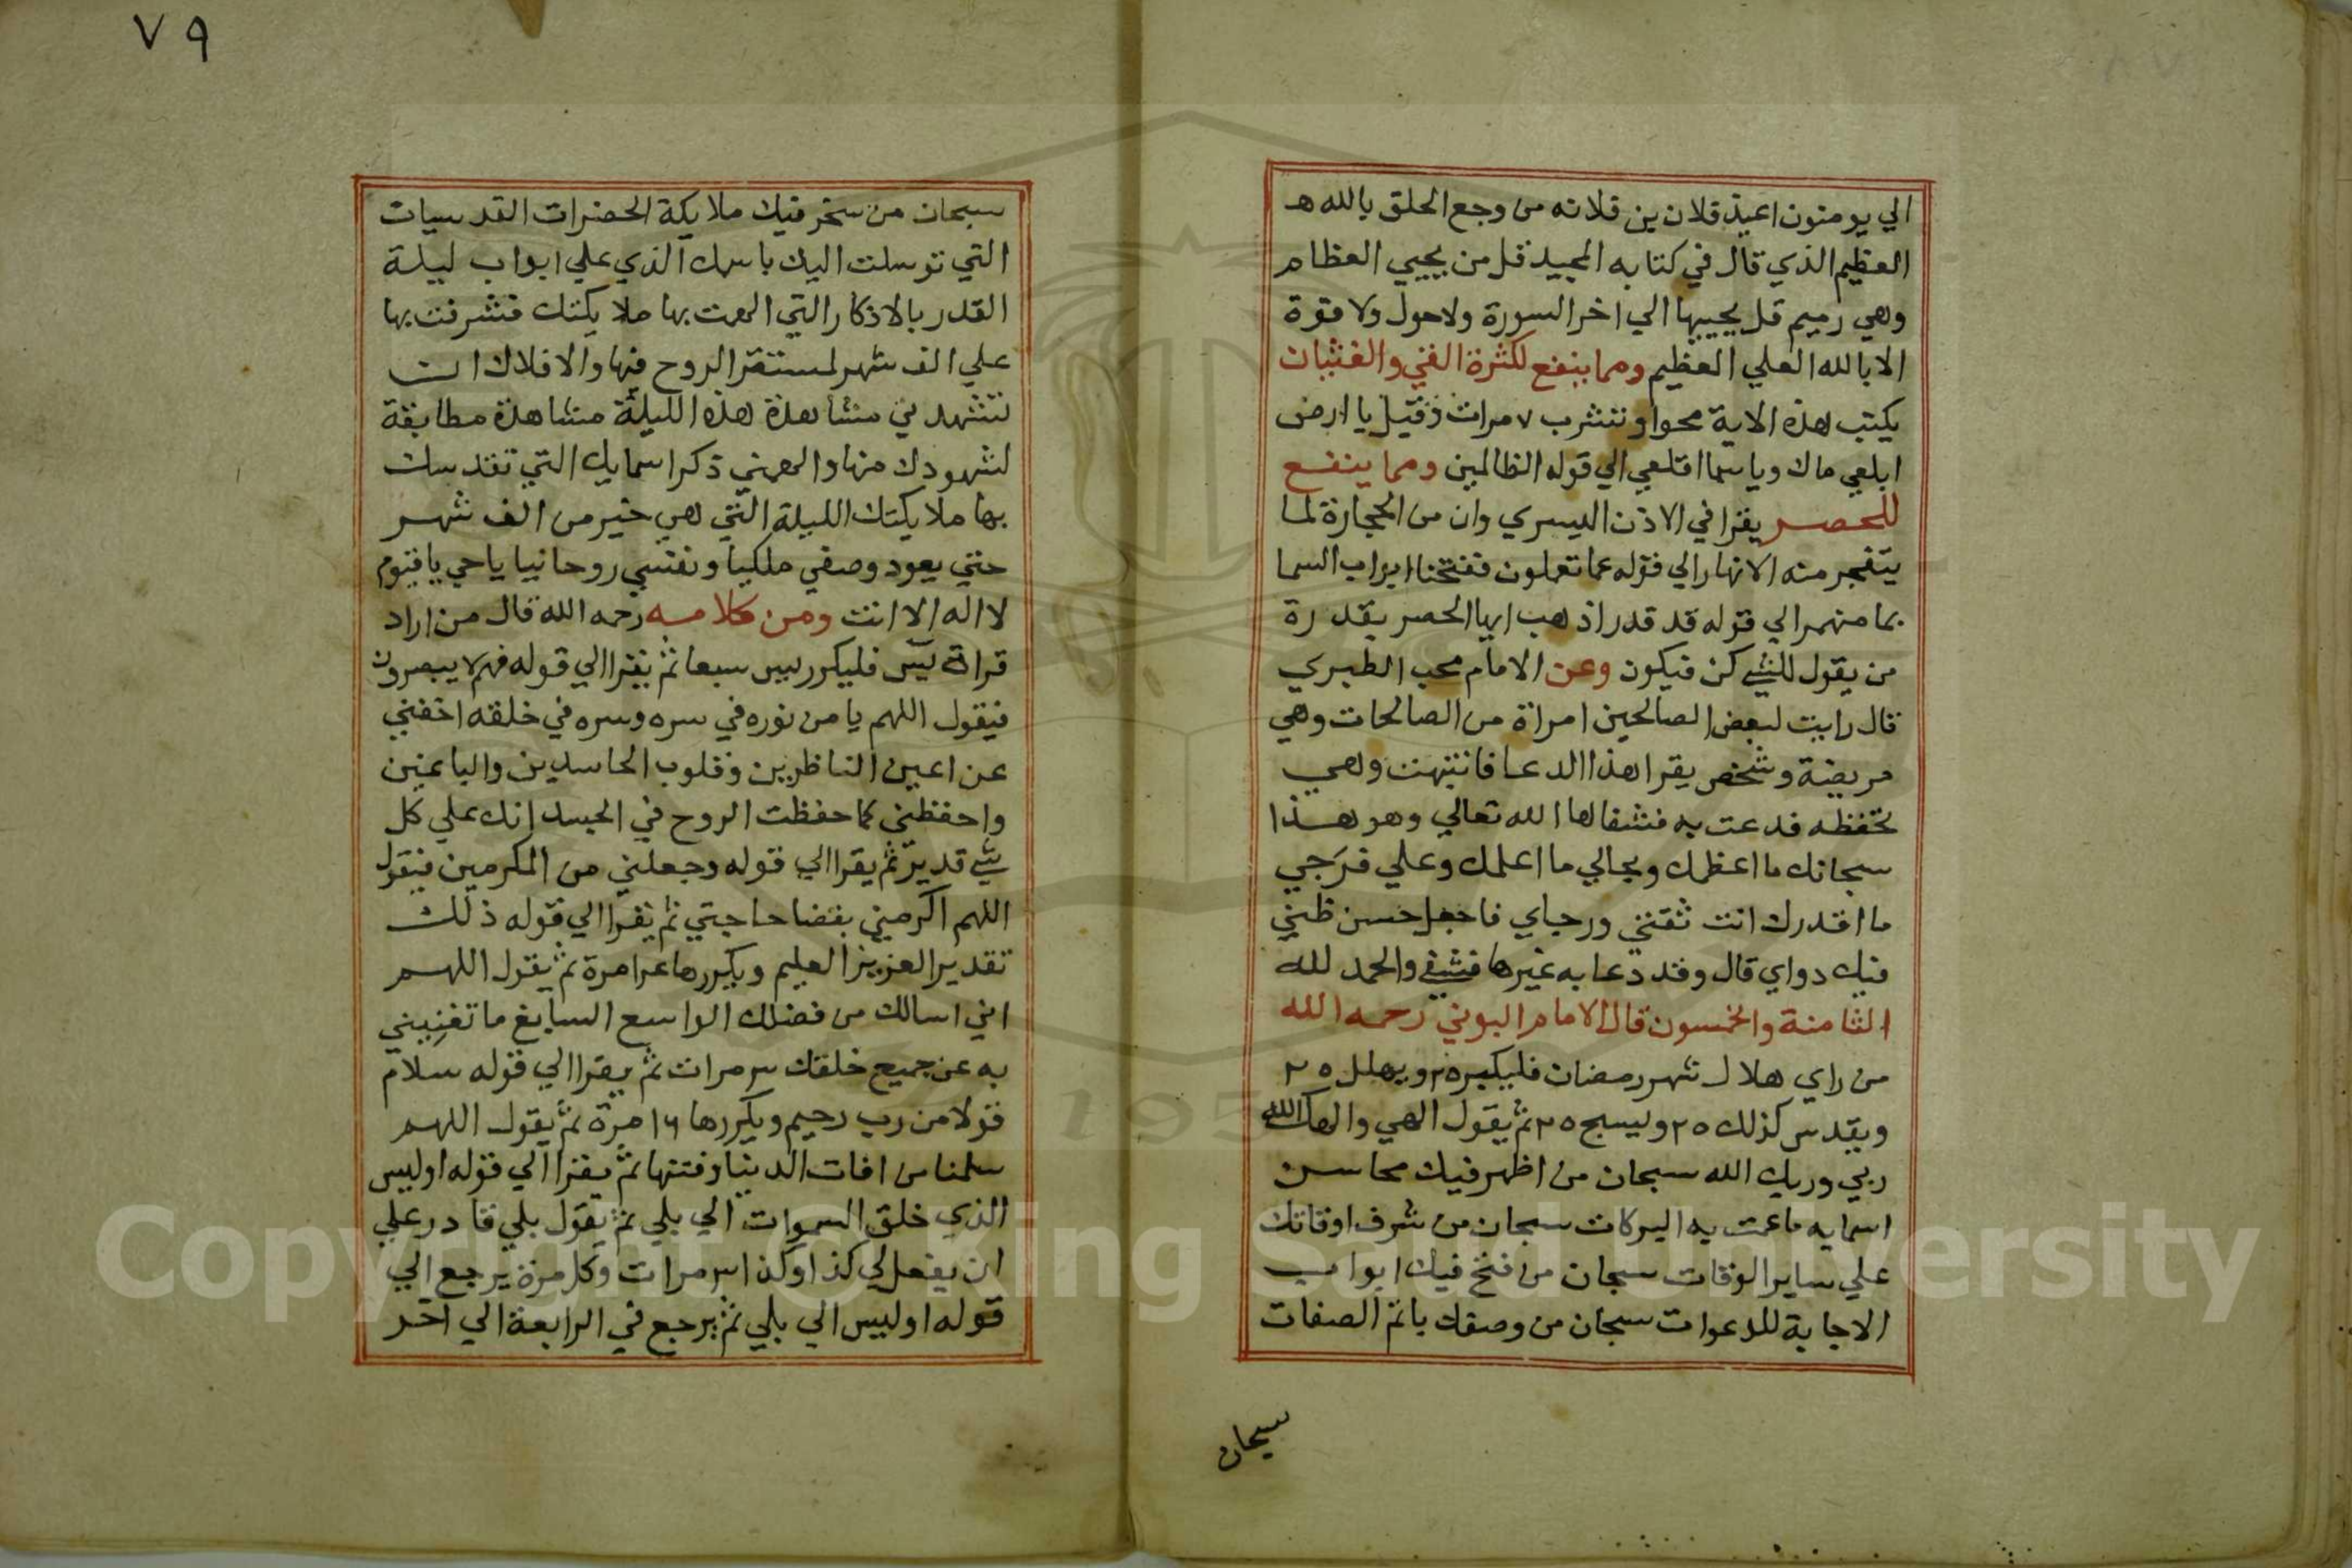 الي يومنون اعيذ فلان بن فلانه من وجع الحلق بالله هـ
العظيم الذي قال في كتابه المجيد قل من يحيي العظام
وهي رميم قل يحييها الي اخر السورة ولاحول ولا قوة
الا بالله العلي العظيم ومما ينفع لكثرة القي والغثيان
يكتب هذه الاية محوا وتشرب ٧ مرات وقيل يا ارض
ابلعي ماك ويا سما اقلعي الي قوله الظالمين ومما ينفع
للحصر يقرا في الاذن اليسري وان من الحجارة لما
يتفجر منه الانهار الي قوله عما تعملون ففتحنا ابواب السما
بما منهمر الي قوله قد قدر اذهب ايها الحصر بقدرة
من يقول للشي كن فيكون وعن الامام محب الطبري
قال رايت لبعض الصالحين امراة من الصالحات وهي
مريضة وشخص يقرا هذا الدعا فانتبهت وهي
تحفظه فدعت به فشفاها الله تعالي وهو هذا
سبحانك ما اعظمك وبحالي ما اعلمك وعلي فرجي
ما اقدرك انت ثقتي ورجاي فاجعل حسن ظني
فيك دواي قال وقد دعا به غيرها فشفي والحمد لله
الثامنة والخمسون قال الامام البوني رحمه الله
من راي هلال شهر رمضان فليكبر ٢٥ ويهلل ٢٥
ويقدس كذلك ٢٥ وليسبح ٢٥ ثم يقول الهي والهك الله
ربي وربك الله سبحان من اظهر فيك محاسن
اسمايه ما عمت به البركات سبحان من شرف اوقاتك
علي ساير الاوقات سبحان من فتح فيك ابواب
الاجابة للدعوات سبحان من وصفك باتم الصفات
سبحان
٧٩
سبحان من سخر فيك ملايكة الحضرات القدسيات
التي توسلت اليك باسمك الذي علي ابواب ليلة
القدر بالاذكار التي الهمت بها ملايكتك فتشرفت بها
علي الف شهر لمستقر الروح فيها والافلاك ان
تشهدني مشاهدة هذه الليلة مشاهدة مطابقة
لشهودك منها والهمني ذكر اسمايك التي تقدست
بها ملايكتك الليلة التي هي خير من الف شهر
حتي يعود وصفي ملكيا ونفسي روحانيا يا حي يا قيوم
لا اله الا انت ومن كلامه رحمه الله قال من اراد
قراة يس فليكرر يس سبعا ثم يقرا الي قوله فهم لا يبصرون
فيقول اللهم يا من نوره في سره وسره في خلقه اخفني
عن اعين الناظرين وقلوب الحاسدين والباغين
واحفظني كما حفظت الروح في الجسد انك علي كل
شي قدير ثم يقرا الي قوله وجعلني من المكرمين فيقول
اللهم اكرمني بقضا حاجتي ثم يقرا الي قوله ذلك
تقدير العزيز العليم ويكررها مرة ثم يقول اللهم
اني اسالك من فضلك الواسع السابغ ما تغنيني
به عن جميع خلقك مرات ثم يقرا الي قوله سلام
قولا من رب رحيم ويكررها ١٦ مرة ثم يقول اللهم
سلمنا من افات الدنيا وفتنها ثم يقرا الي قوله اوليس
الذي خلق السموات الي بلي ثم يقول بلي قادر علي
ان يفعل لي كذا وكذا مرات وكل مرة يرجع الي
قوله اوليس الي بلي ثم يرجع في الرابعة الي اخر
Copyright © King Saud University